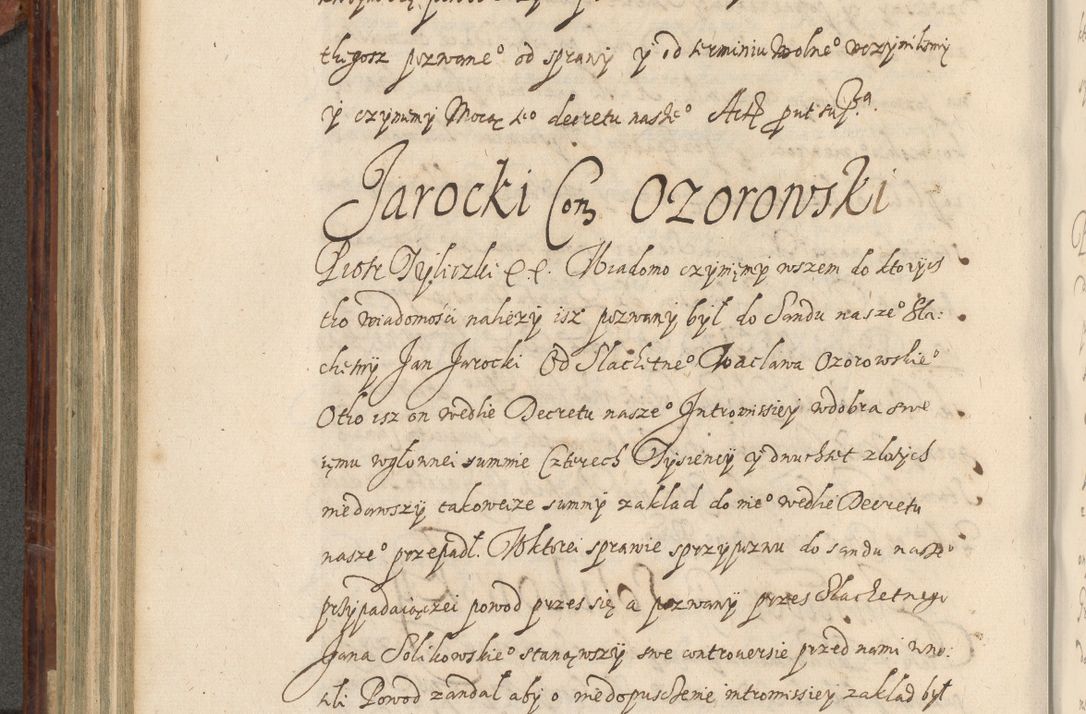 tkigosz pozwane° od sprawÿ ÿ od terminiu Wolne° uczÿnilismÿ
ÿ czÿnimÿ Mocą te° decretu nasze° Act put sup
Jarocki Con OZorowski
Piotr Tÿliczki Wiadomo czÿnięmÿ wszem do ktorÿch
tho wiadomości nalieżÿ isz pozwanÿ bÿł do Sandu nasze° Sla:
chetnÿ Jan Jarocki Od Slachetne° Waclawa Ozorowskie°
Otho isz on wedlie Decretu nasze° Intromissiej wdobra swe
iemu wglownei summie Czterech Tÿsiencÿ ÿ dwuchset zlotÿch
niedawszÿ takoweize summÿ zaklad do nie° wedlie Decretu
nasze° przepadl. Wktorei sprawie sprzÿpozwu do sandu nasze°
przÿpadaiączei powod przes się a pozwanÿ przes Slachetnego
Jana Solikowskie° stanąwszÿ swe controuersie przed nami wno:
sili Powod żandal abÿ o niedopusczenie intromissiej zaklad bÿł